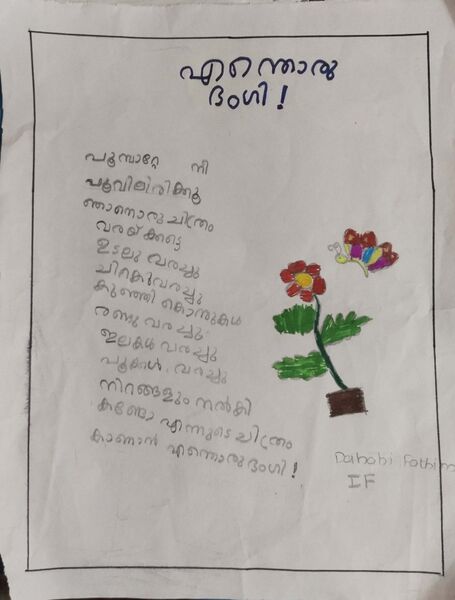 എന്തൊരു
ഭംഗി!
പൂമ്പാറ്റേ നീ
പൂവിലിരിക്കൂ
ഞാനൊരു ചിത്രം
വരയ്ക്കട്ടെ
ഉടലു വരച്ചു
ചിറകുവരച്ചു
കുഞ്ഞി കൊമ്പുകൾ
രണ്ടു വരച്ചു
ഇലകൾ വരച്ചു
പൂക്കൾ വരച്ചു
നിറങ്ങളും നൽകി
കണ്ടോ എന്നുടെ ചിത്രം
കാണാൻ എന്തൊരു ഭംഗി!
Fathima
IF